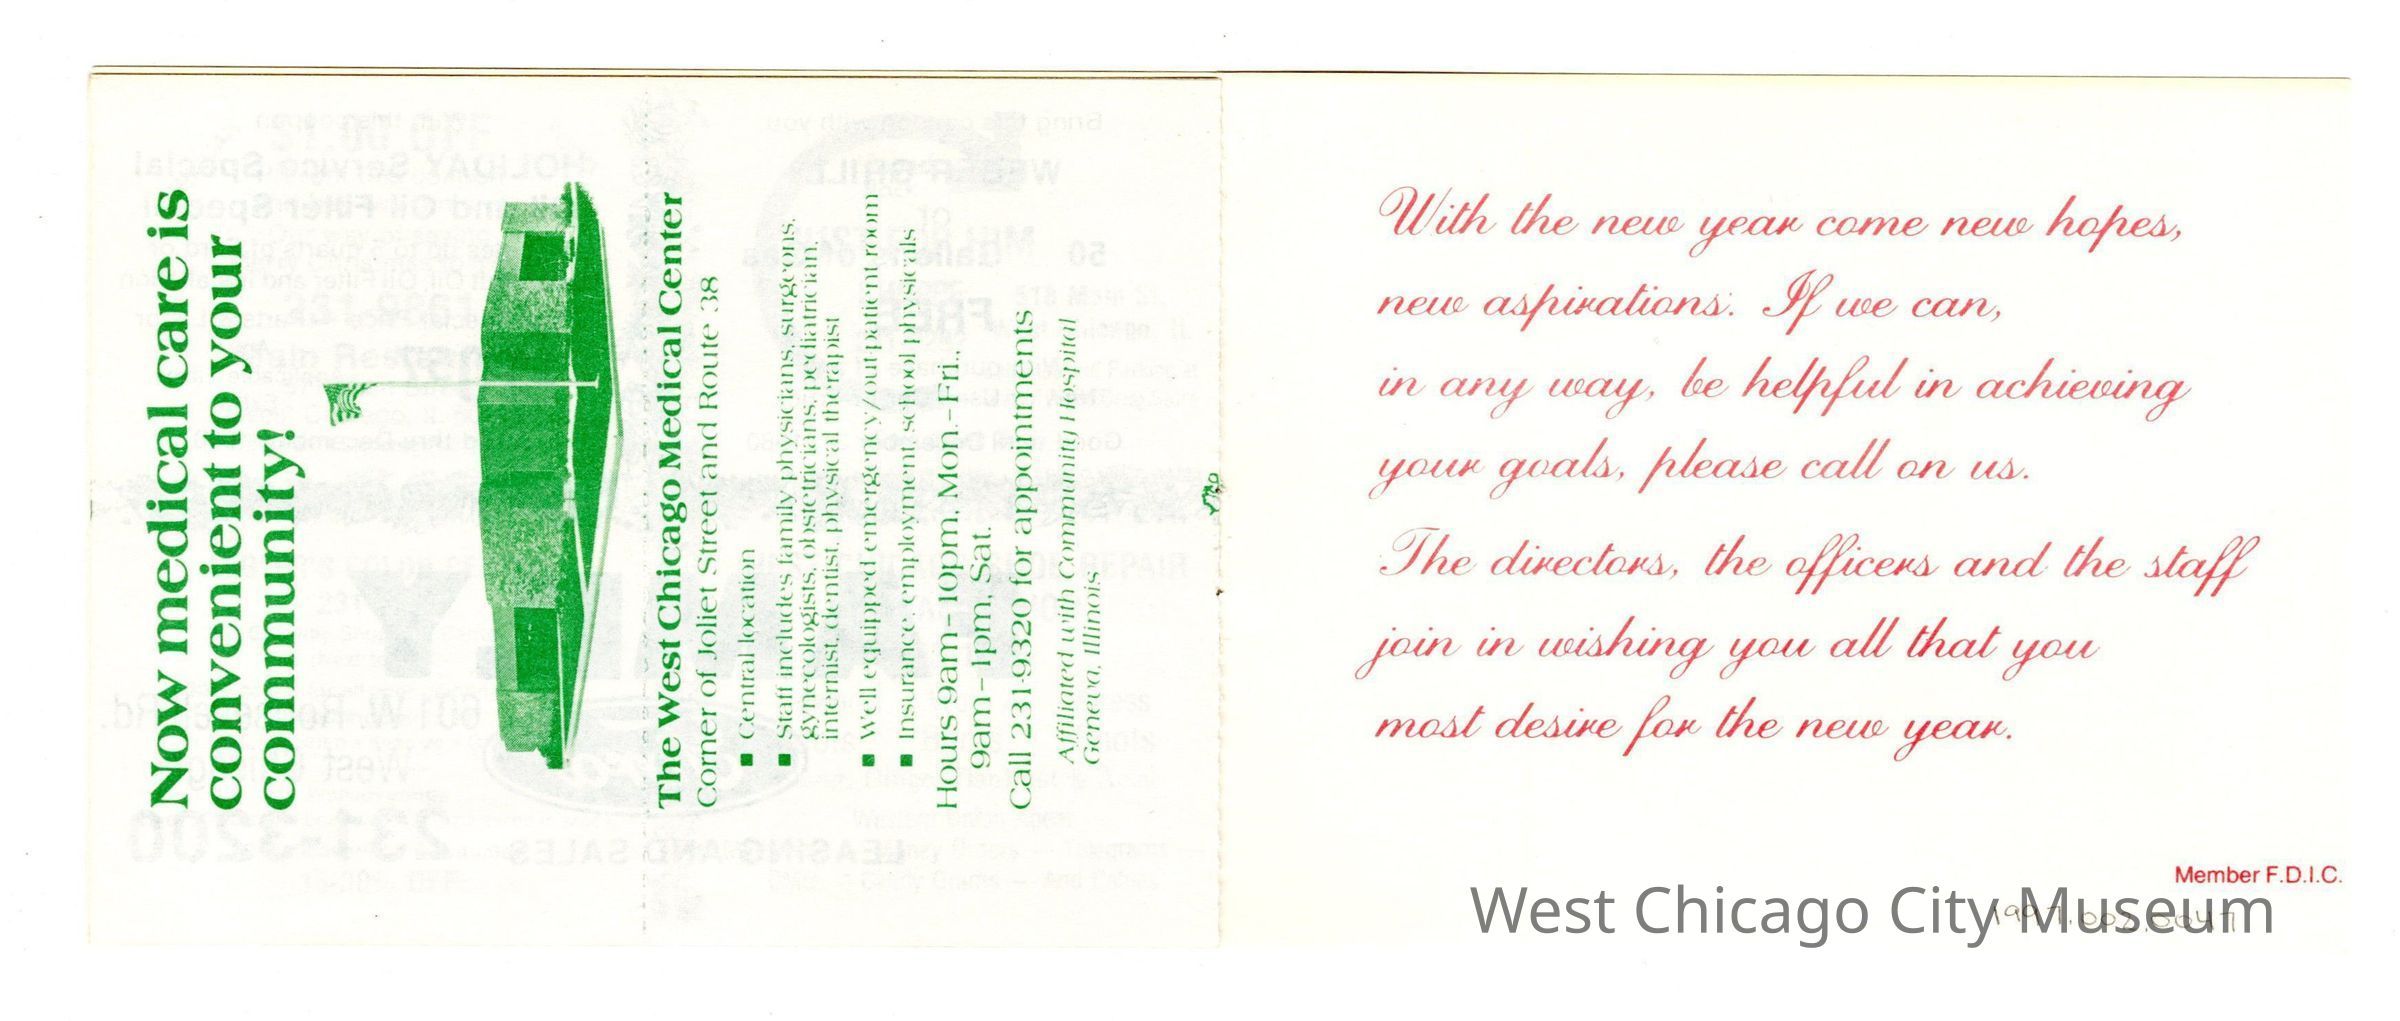 Now medical care is
convenient to your
community!
The West Chicago Medical Center
Corner of Joliet Street and Route 38
■ Central location
■ Staff includes family physicians, surgeons,
gynecologists, obstetricians, pediatrician,
internist, dentist, physical therapist
■ Well equipped emergency/out-patient room
■ Insurance, employment, school physicals
Hours 9am-10pm, Mon.-Fri.,
9am-1pm, Sat.
Call 231-9320 for appointments
Affiliated with Community Hospital
Geneva, Illinois
With the new year come new hopes,
new aspirations. If we can,
in any way, be helpful in achieving
your goals, please call on us.
The directors, the officers and the staff
join in wishing you all that you
most desire for the new year.
Member F.D.I.C.
West Chicago City Museum
1997.002.0047